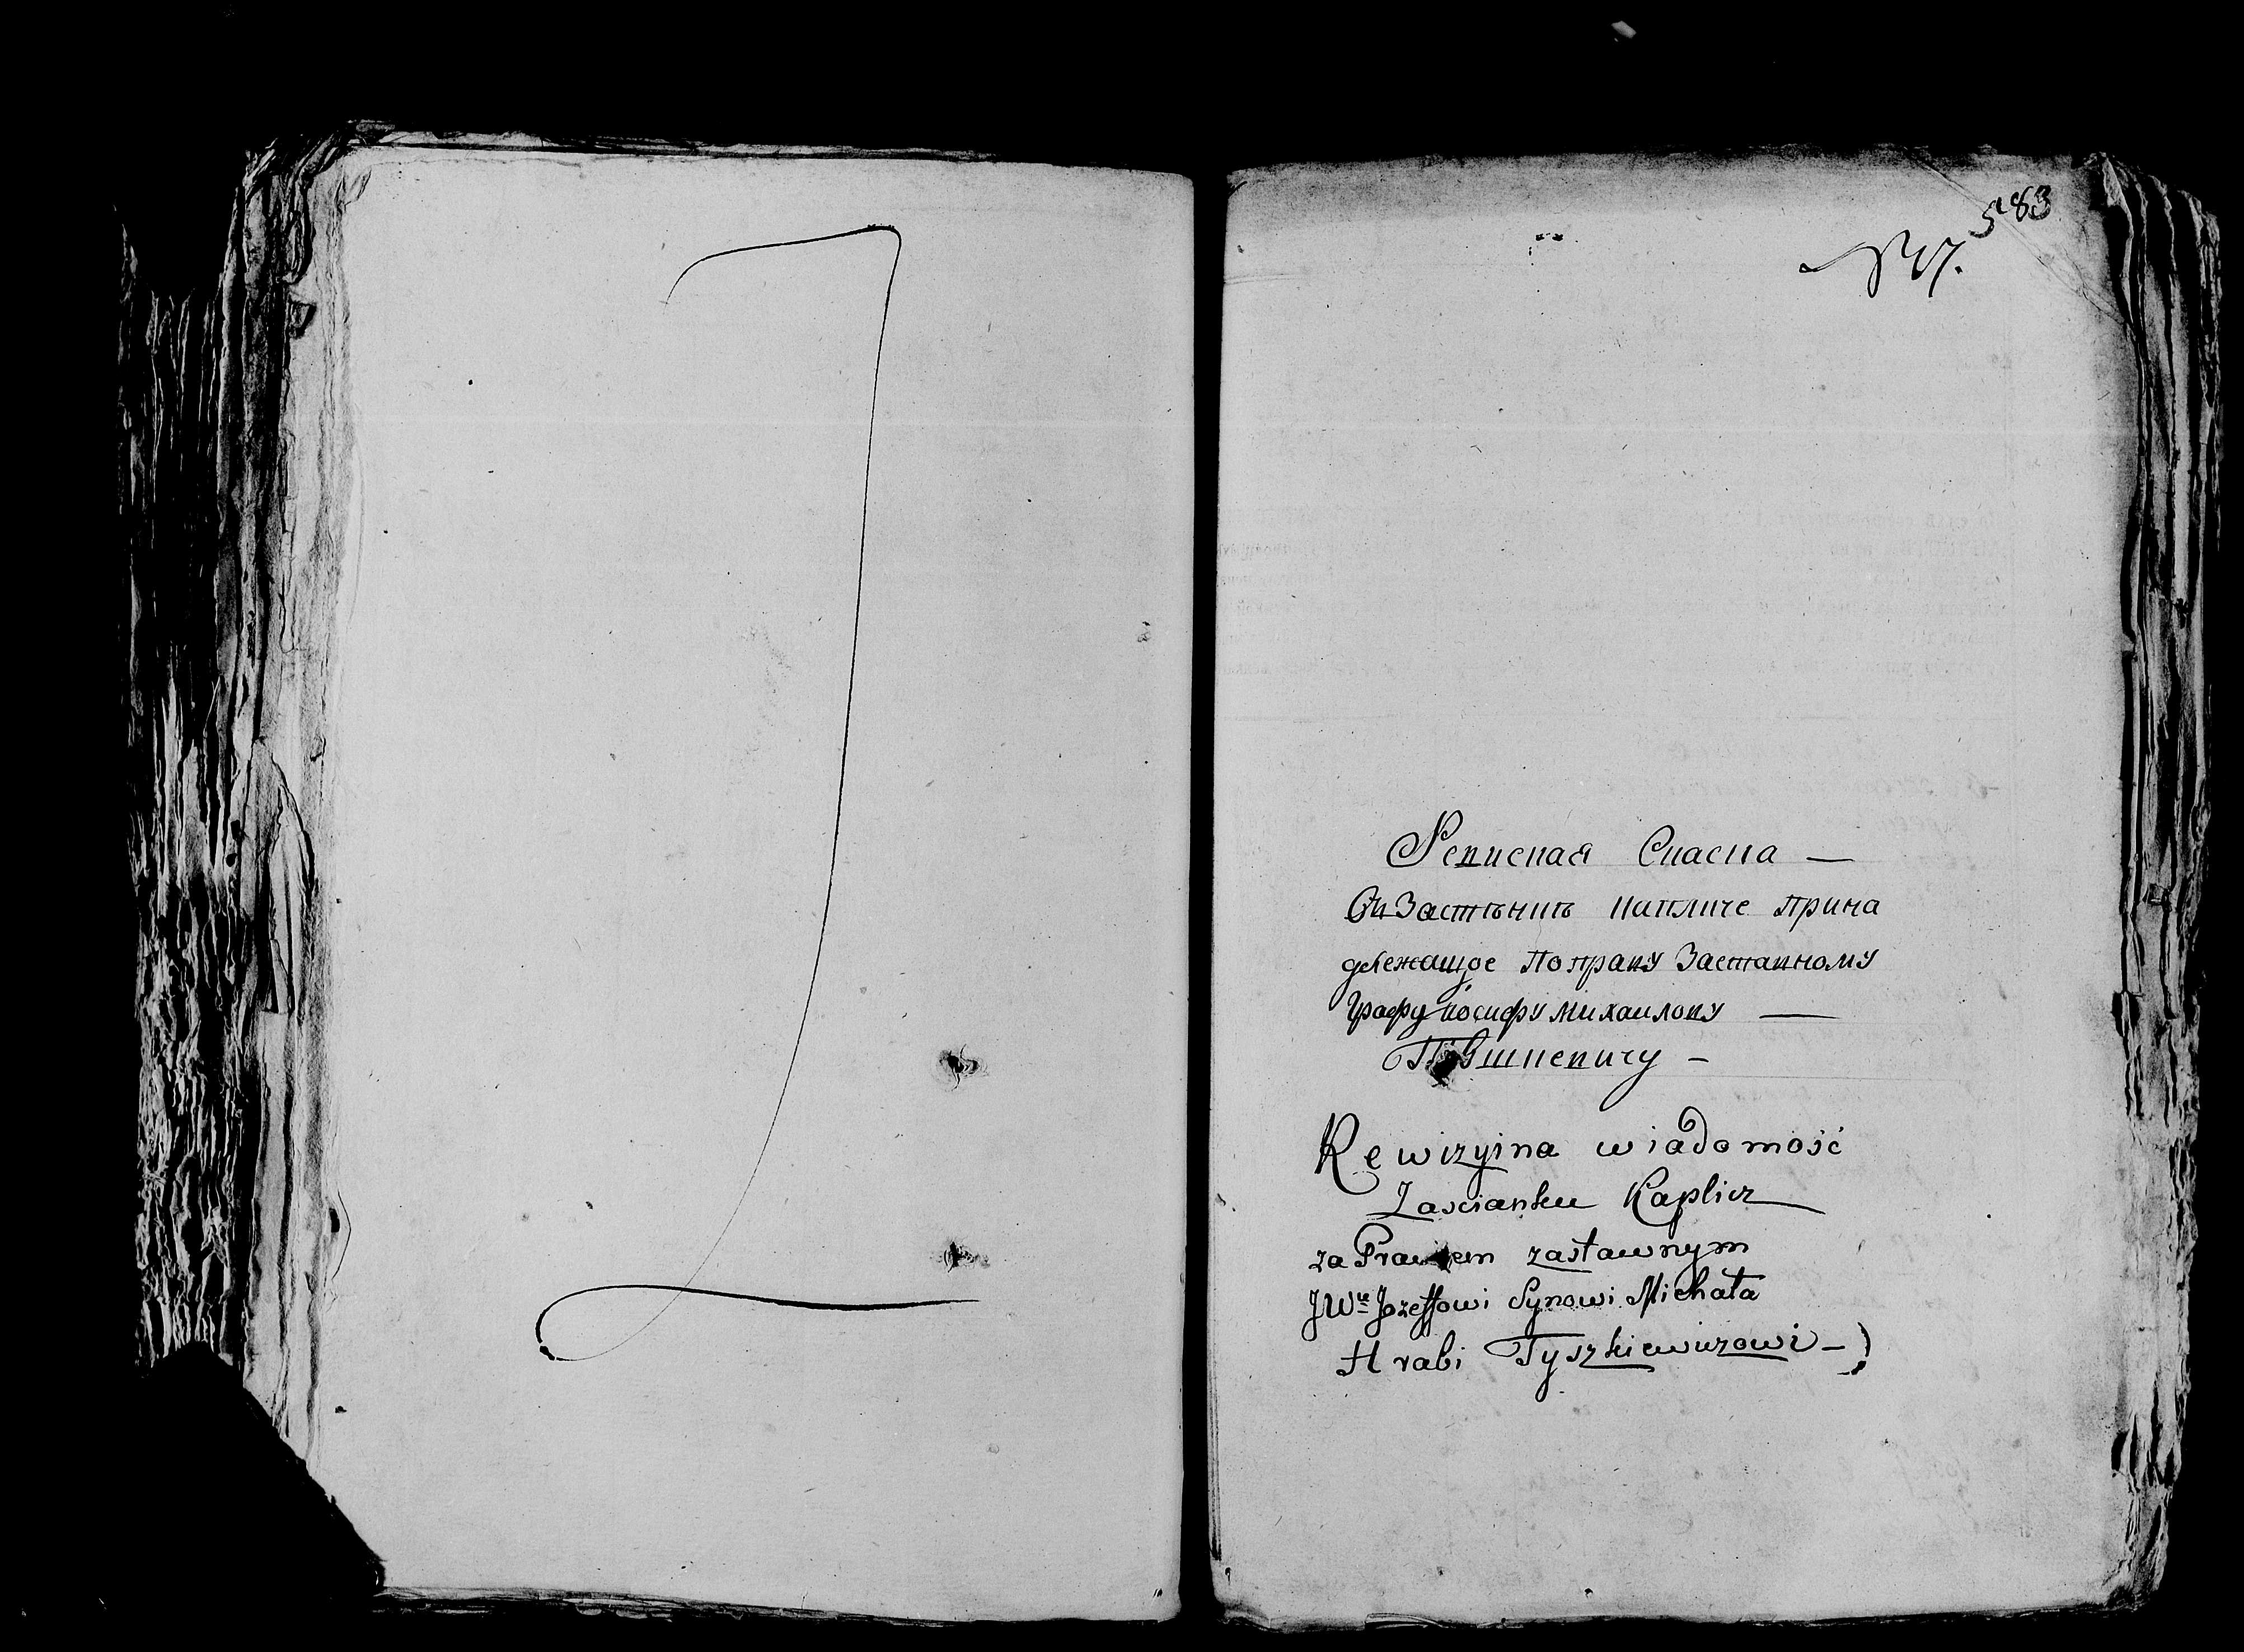 583
Ревиская Скаска —
Въ Застѣнкѣ Капличе Прина
длежащое По праву Заставному
Графу Іосифу Михаилову —
Тышкевичу —
Rewizyina wiadomość
Zascianku Kaplicz
za Prawem zastawnym
JWu Jozeffowi Synowi Michała
Hrabi Tyszkiewiczowi —